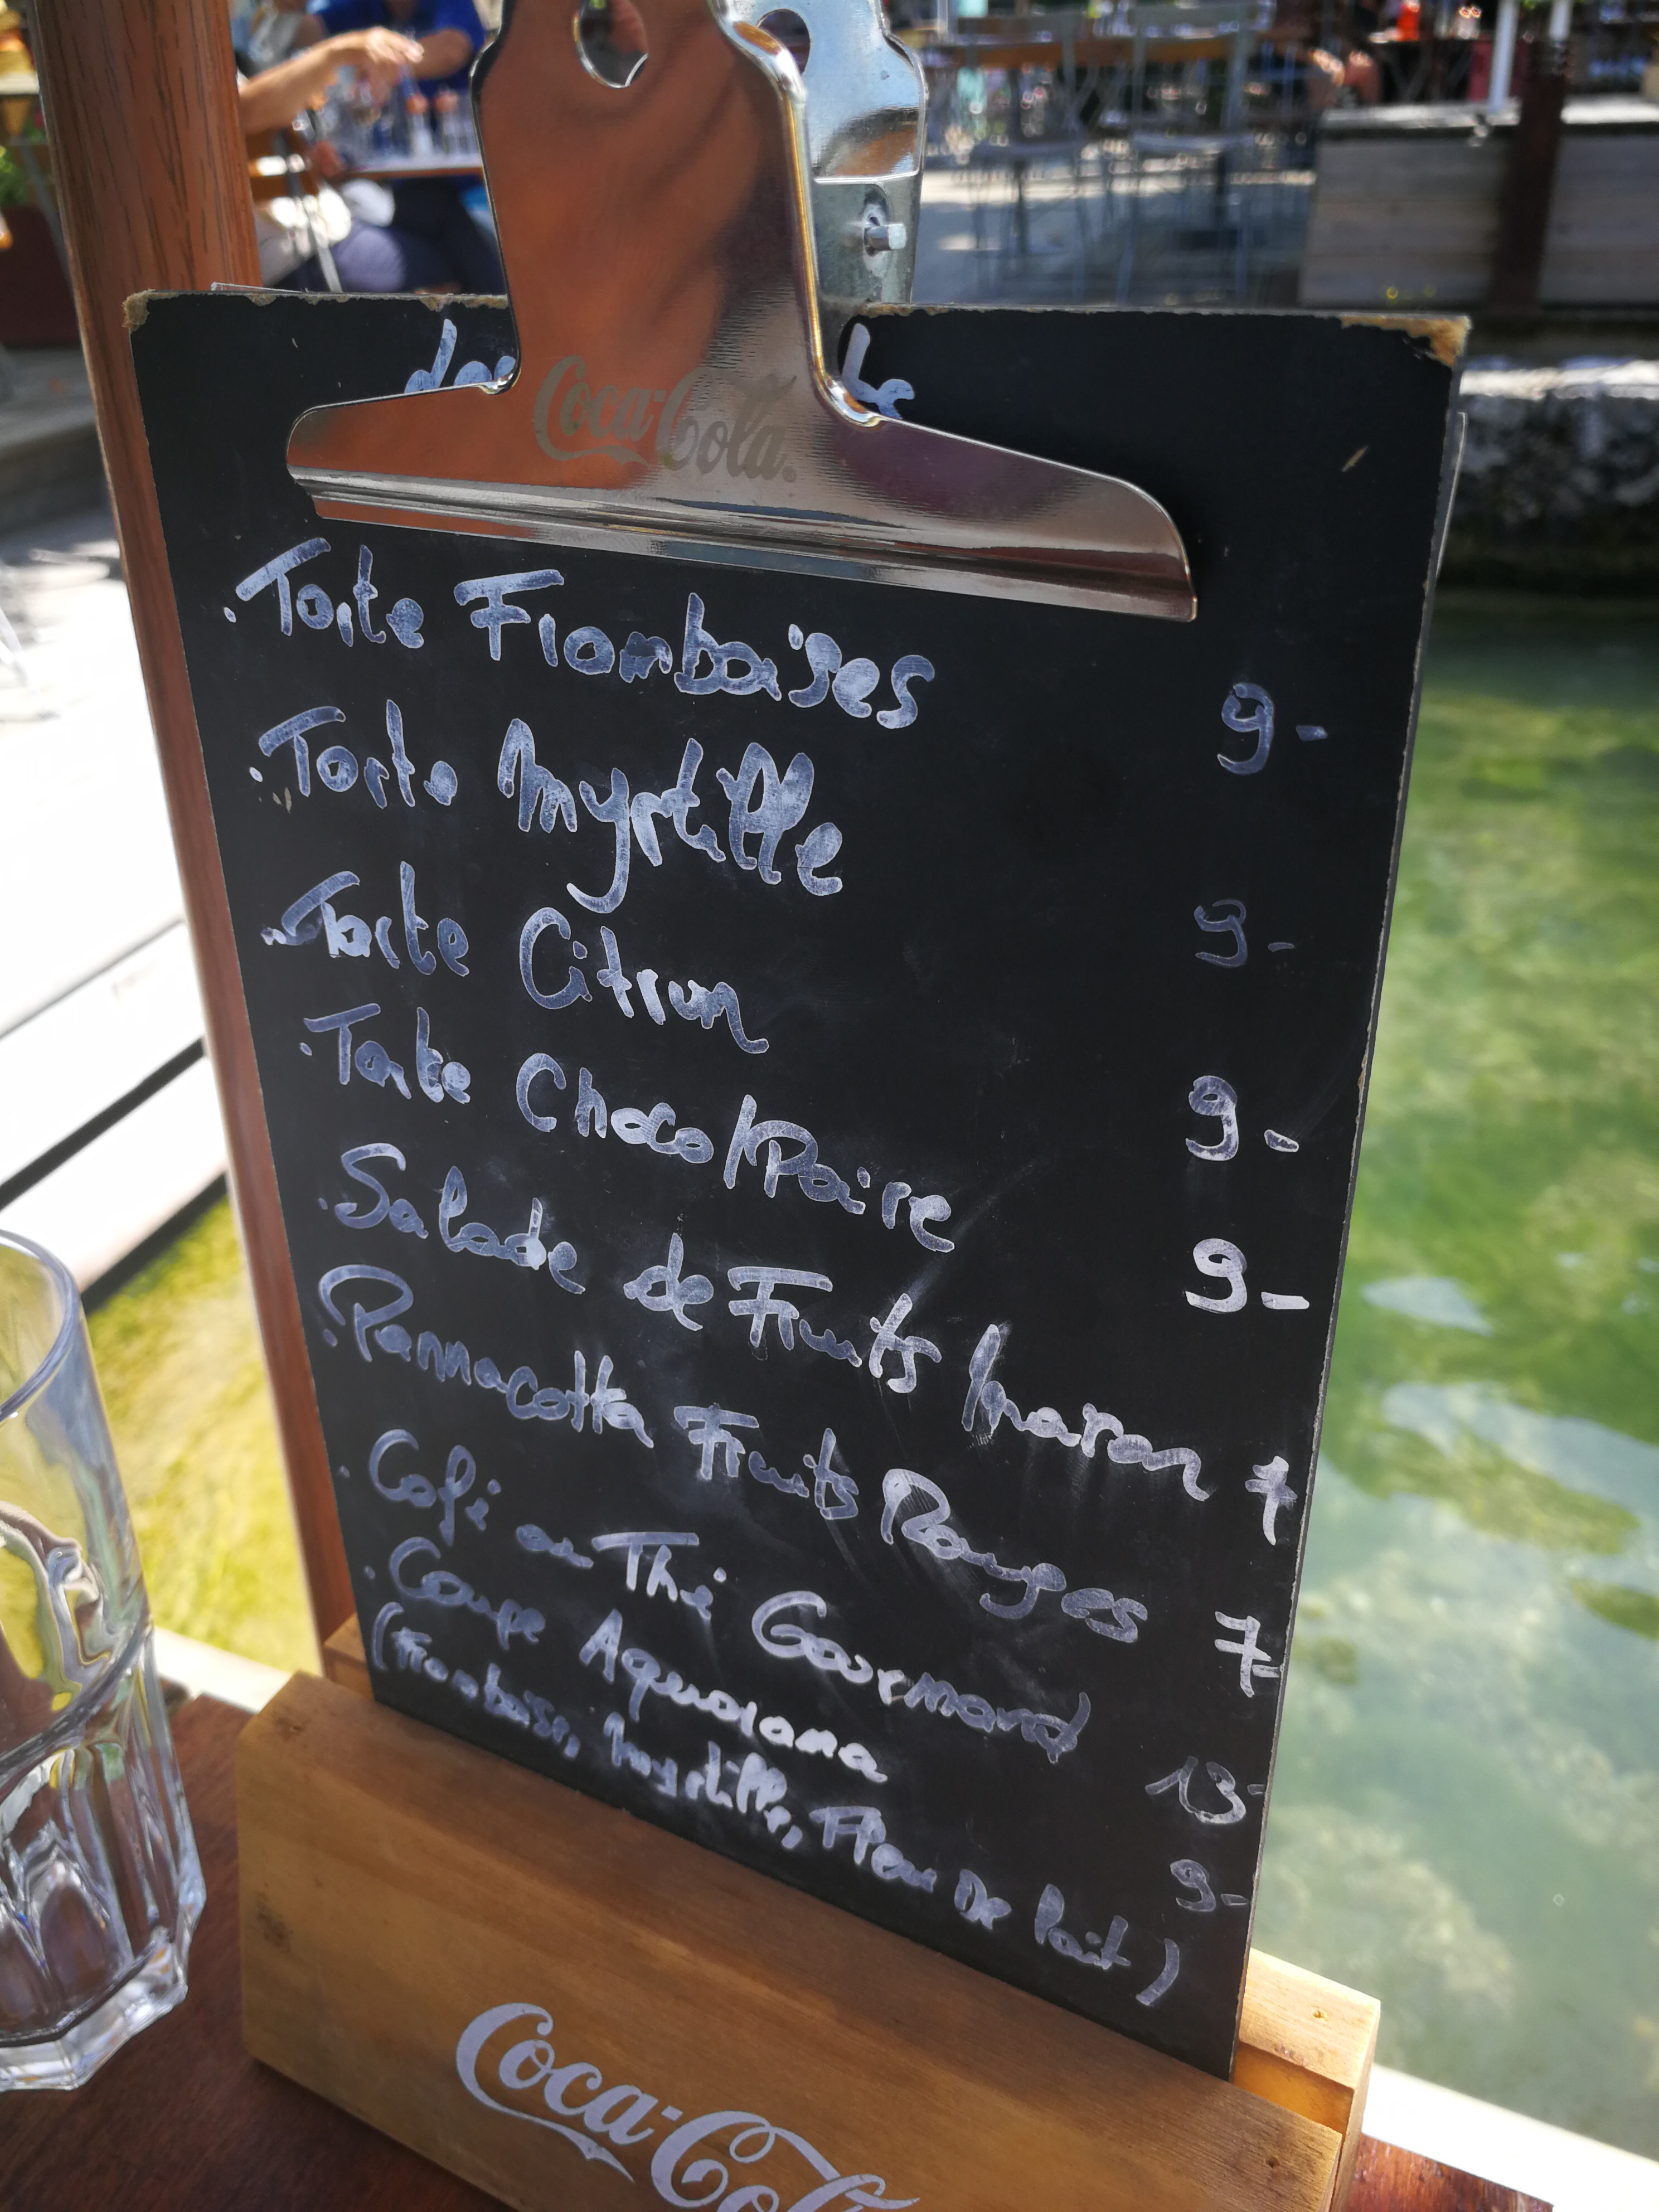 Coca-Cola
. Tarte Framboises 9-
. Tarte Myrtille 9-
. Tarte Citron 9-
. Tarte Choco/Poire 9-
. Salade de Fruits Maison 7
. Pannacotta Fruits Rouges 7-
. Café ou Thé Gourmand 13-
. Coupe Aquarama 9-
(Framboise, Myrtille, Fleur De lait)
Coca-Col